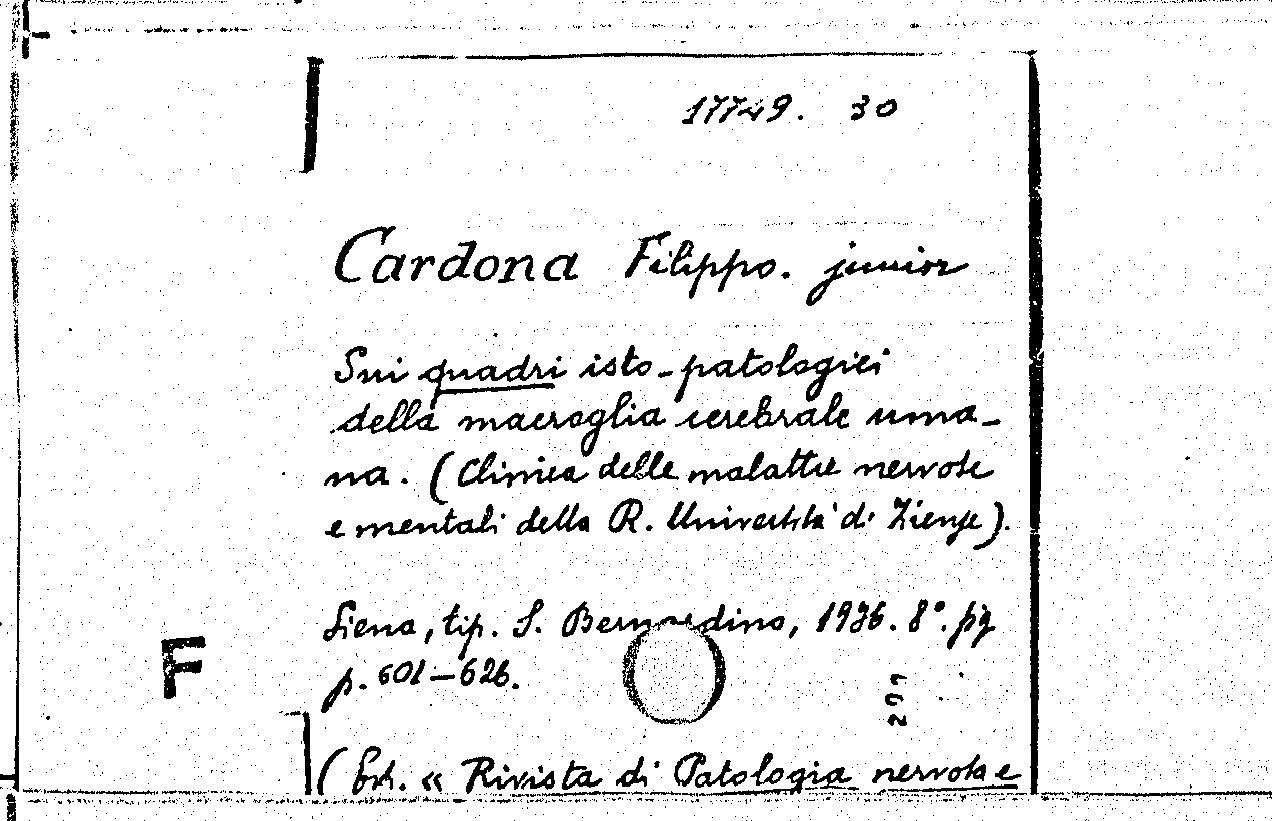 17749. 30
Cardona Filippo. junior
Sui quadri isto-patologici
della macroglia cerebrale uma-
na. (Clinica delle malattie nervose
e mentali della R. Università di Firenze).
Siena, tip. S. Bernardino, 1936. 8°. fig
p. 601-626.
299
F
(Estr. « Rivista di Patologia nervosa e